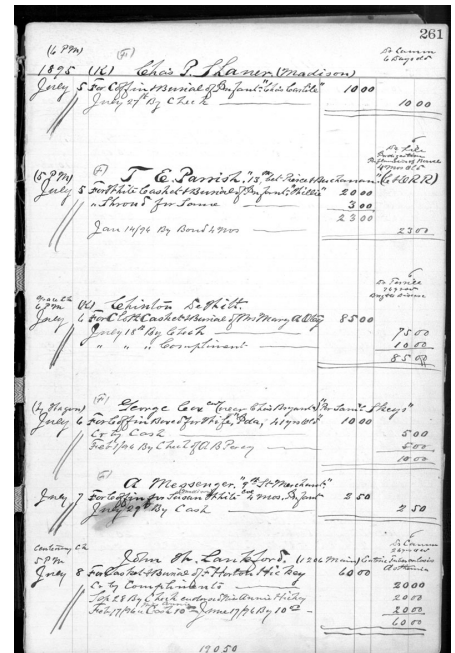 261
(6 PM) (F) Dr Camm
6 Days old
1895 (K) Chas P. Shaner (Madison)
July 5 For Coffin & Burial of Infant "Chas Castile" 10 00
July 27th By Check 10 00
Dr
4 mos old
(5 PM) (F) T. E. Parrish. "13th bet Pierce & Buchanan" (C & O R R)
July 5 For White Casket & Burial of Infant "Willie" 20 00
" Shroud for Same 3 00
23 00
Jan 14/96 By Bond 4 mos 23 00
Dr Terrell
76 years
Brights Disease
6 PM (K) Clinton DeWitt.
July 6 For Cloth Casket & Burial of Mrs Mary A 85 00
July 18th By Check 75 00
" " " Compliment 10 00
85 00
(By Wagon) (F) George Cox (near Chas Bryant's) "Pr Saml
July 6 For Coffin Boxed for Wife's 41 yrs old 10 00
Cr By Cash 5 00
Feb 1/96 By Check of A B Percy 5 00
10 00
(F) A Messenger. "9th St Merchant"
July 7 For Coffin for Susan White 4 mos. Infant 2 50
July 29th By Cash 2 50
Centenary Ch Dr Camm
5 PM John W. Lankford. (1206 Main)
July 8 For Casket & Burial of F Horton Hickey 60 00
Cr By Compliment 20 00
Sep 28 By Check endorsed Miss Annie Hickey 20 00
Feb 17/96 Cash 10 June 17/96 By 10 20 00
60 00
190 50